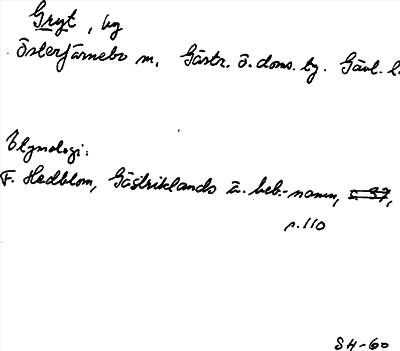 Gryt, by
Österfärnebo sn, Gästr. ö. doms. by. Gävl. l.
Etymologi:
F. Hedblom, Gästriklands ä. beb.-namn, s. 37,
s. 110
SH-60